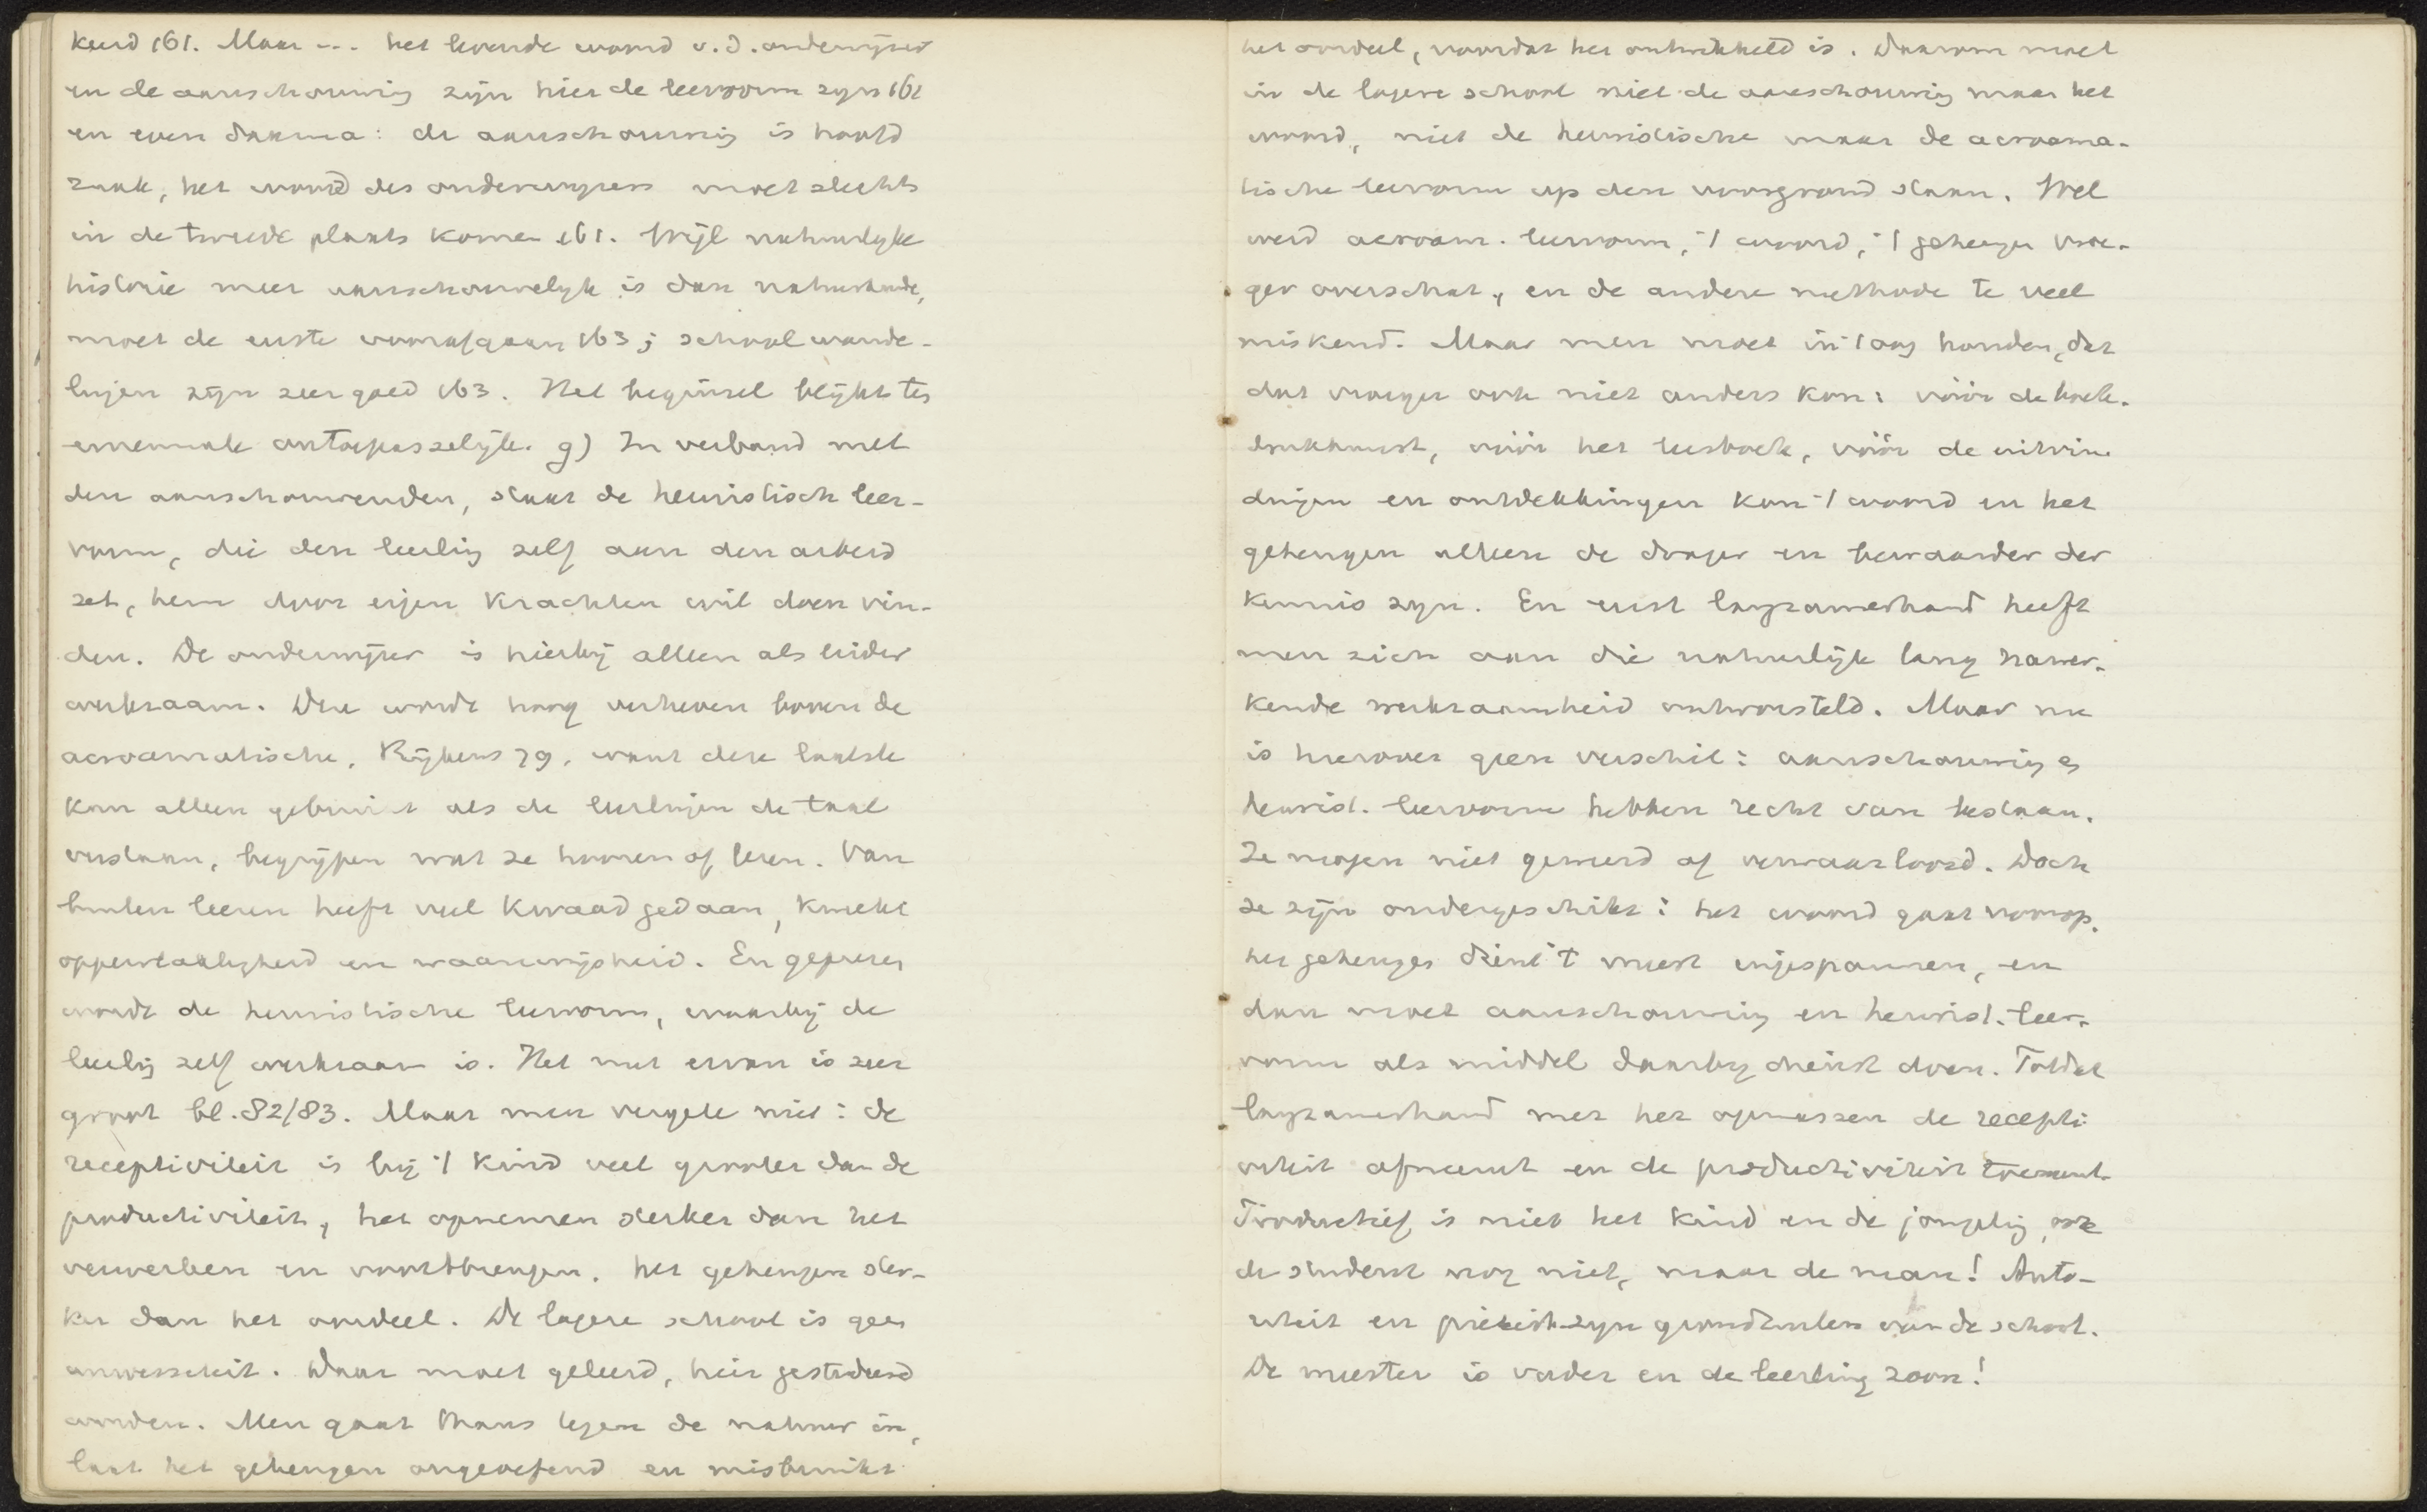 keurd 161. Maar --- het levende woord v.d. onderwijzer
en de aanschouwing zijn hier de leervorm zyn 161
en even daarna: de aanschouwing is hoofd
zaak, het woord des onderwyzers moet slechts
in de tweede plaats komen 161. Wijl natuurlyke
historie meer aanschouwelyk is dan natuurkunde,
moet de eerste voorafgaan 163; schoolwande-
lingen zijn zeer goed 163. Het beginsel blijkt tes
ennemale ontoepasselijk. g) In verband met
den aanschouwenden, staat de heuristisch leer-
vorm, die den leerling zelf aan den arbeid
zet, hem door eigen krachten wil doen vin-
den. De onderwijzer is hierbij alleen als leider
werkzaam. Deze wordt hoog verheven boven de
acroamatische, Rijkens 79, want deze laatste
kan alleen gebruikt als de leerlingen de taal
verstaan, begrijpen wat ze hooren of lezen. Van
buiten leeren heeft veel kwaad gedaan, kweekt
oppervlakkigheid en waanwijsheid. En geprezen
wordt de heuristische leervorm, waarbij de
leerling zelf werkzaam is. Het nut ervan is zeer
groot bl. 82/83. Maar men vergete niet: de
receptiviteit is bij 't kind veel grooter dan de
productiviteit, het opnemen sterker dan het
verwerken en voortbrengen, het geheugen ster-
ker dan het oordeel. De lagere school is geen
universiteit. Daar moet geleerd, hier gestudeerd
worden. Men gaat thans tegen de natuur in,
laat het geheugen ongeoefend en misbruikt
het oordeel, voordat het ontwikkeld is. Daarom moet
in de lagere school niet de aanschouwing maar het
woord, niet de heuristische maar de acroama-
tische leervorm op den voorgrond staan. Wel
werd acroam. leervorm, 't woord, 't geheugen vroe-
ger overschat, en de andere methode te veel
miskend. Maar men moet in 't oog houden, dat
dat vroeger ook niet anders kon: vóór de boek-
drukkunst, vóór het leesboek, vóór de uitvin-
dingen en ontdekkingen kon 't woord en het
geheugen alleen de drager en bewaarder der
kennis zyn. En eerst langzamerhand heeft
men zich aan die natuurlijk lang nawer-
kende werkzaamheid ontworsteld. Maar nu
is hierover geen verschil: aanschouwing en
heurist. leervorm hebben recht van bestaan.
Ze mogen niet geweerd of verwaarloosd. Doch
ze zijn ondergeschikt: het woord gaat voorop.
het geheugen dient 't meest ingespannen, en
dan moet aanschouwing en heurist. leer-
vorm als middel daarby dienst doen. Totdat
langzamerhand met het opwassen de recepti-
viteit afneemt en de productiviteit toeneemt.
Productief is niet het kind en de jongeling, ook
de student nog niet, maar de man! Auto-
riteit en piëteit zyn grondzuilen van de school.
De meester is vader en de leerling zoon!